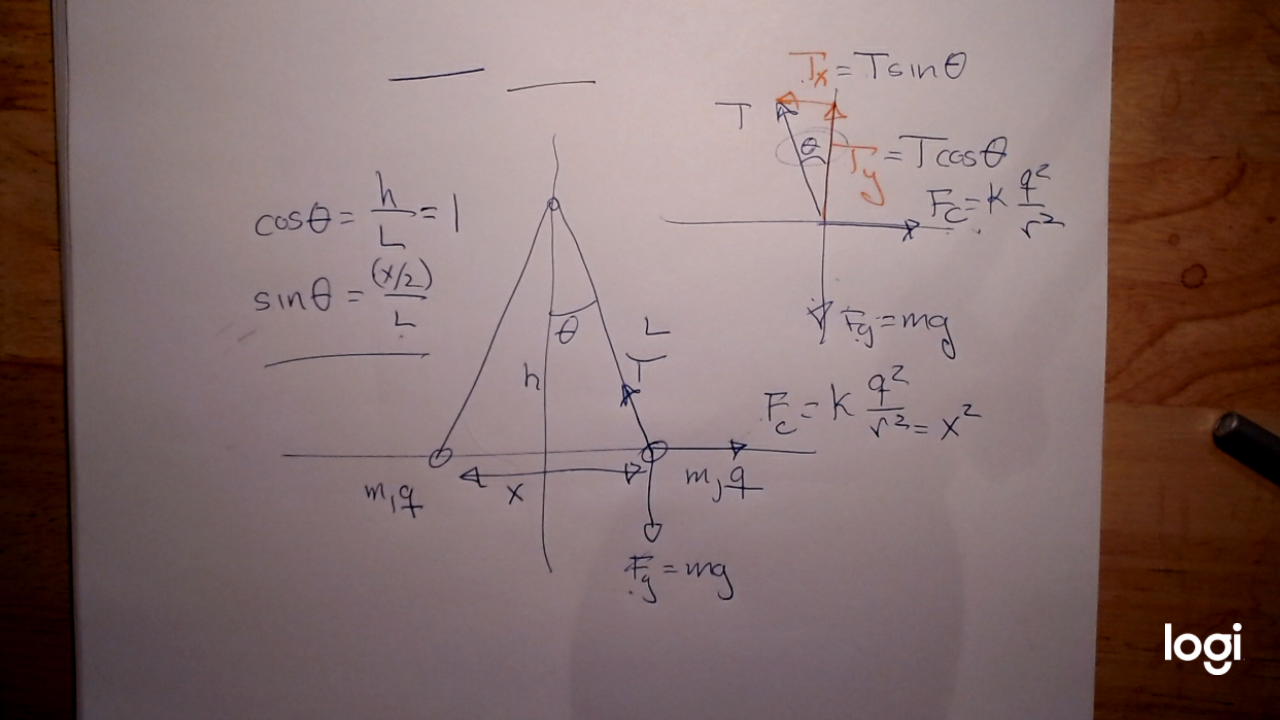 Tx = T sin θ
T
θ
Ty = T cos θ
Fc = K q²/r²
cos θ = h/L = 1
sin θ = (x/2)/L
θ
L
T
h
Fg = mg
Fc = K q²/r² = x²
m, q
x
m, q
Fg = mg
logi